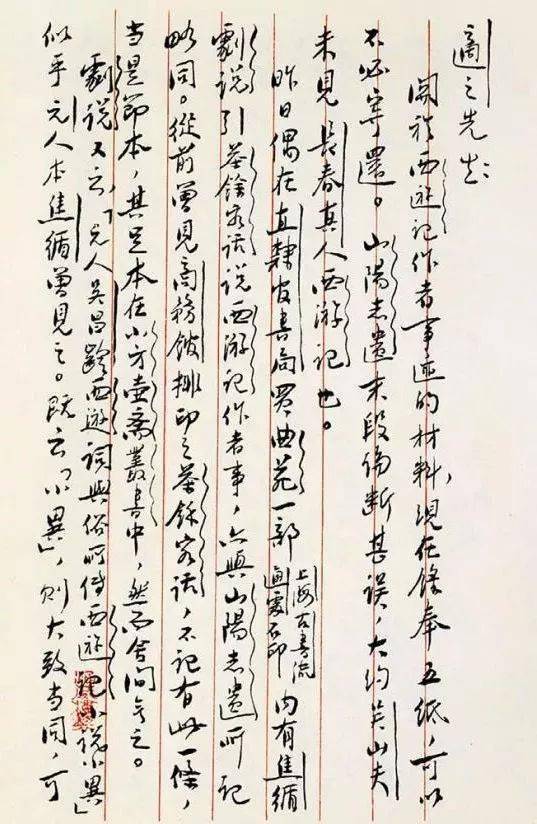 適之先生：
關於西遊記作者事迹的材料，現在錄奉五紙，可以
不必寄還。山陽志遺末段論斷甚誤，大約吳山夫
未見長春真人西游記也。
昨日偶在直隸官書局買曲苑一部上海古書流通處石印內有焦循
劇說引茶餘客話說西游記作者事，亦與山陽志遺所記
略同。從前曾見商務館排印之茶餘客話，不記有此一條，
當是節本，其足本在小方壺齋叢書中，然而舍間無之。
劇說又云，「元人吳昌齡西遊詞與俗所傳西遊記小說小異」
似乎元人本焦循曾見之。既云「小異」，則大致當同，可